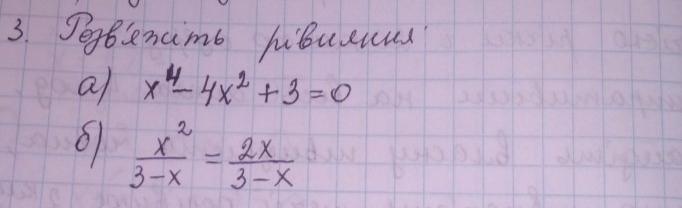 3. Розв'яжіть рівняння:
а) x⁴ - 4x² + 3 = 0
б) x²/(3-x) = 2x/(3-x)